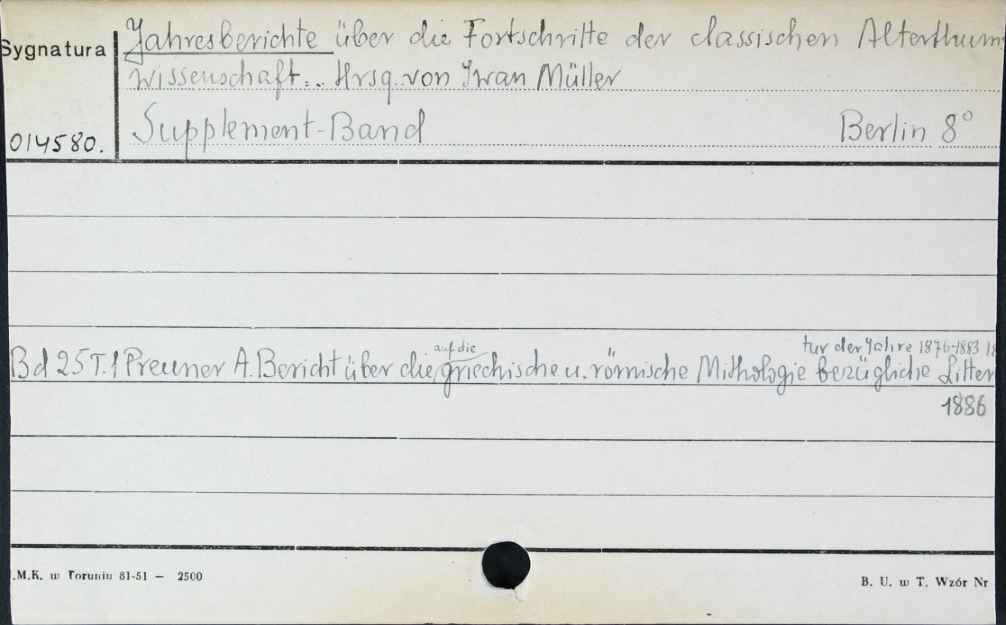 Sygnatura
Jahresberichte über die Fortschritte der classischen Alterthum
wissenschaft... Hrsg. von Iwan Müller
014580.
Supplement-Band Berlin 8°
auf die
für der Jahre 1876-1883 18
Bd 25 T.1 Preuner A. Bericht über die griechische u. römische Mithologie bezügliche Litter
1886
.M.K. w Toruniu 81-51 — 2500
B. U. w T. Wzór Nr